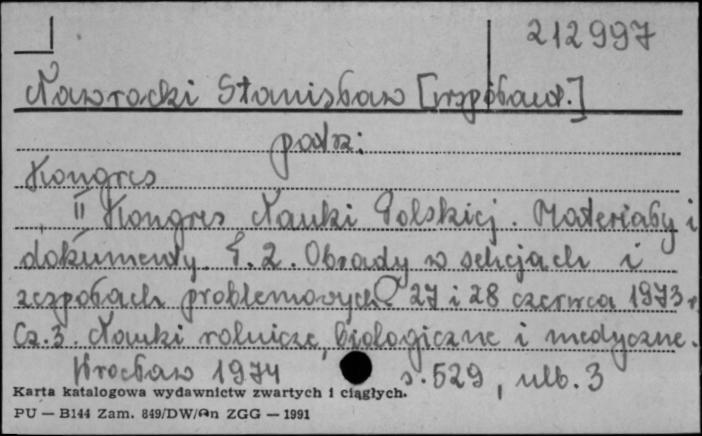 212997
Nawrocki Stanisław [współaut.]
patrz:
Kongres
II Kongres Nauki Polskiej. Materiały i
dokumenty. T. 2. Obrady w sekcjach i
zespołach problemowych 27 i 28 czerwca 1973 r.
Cz. 3. Nauki rolnicze, biologiczne i medyczne.
Wrocław 1974 s. 529, nlb. 3
Karta katalogowa wydawnictw zwartych i ciągłych.
PU — B144 Zam. 849/DW/An ZGG — 1991